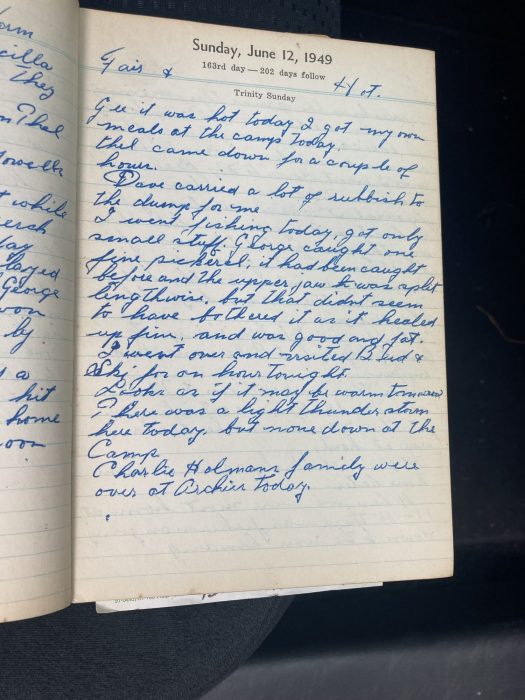 orm
cilla
They
n Thel
owelle
t while
erch
lay
layed
George
won
by
s a
hit
home
oon
Sunday, June 12, 1949
163rd day—202 days follow
Fair & Hot.
Trinity Sunday
Gee it was hot today I got my own
meals at the camp today.
thel came down for a couple of
hours.
Dave carried a lot of rubbish to
the dump for me
I went fishing today, got only
small stuff. George caught one
fine pickerel, it had been caught
before and the upper jaw was split
lengthwise. but that didnt seem
to have bothered it as it healed
up fine, and was good and fat.
I went over and visited Bud &
Skj for an hour tonight.
Looks as if it may be warm tomorrow
There was a light thunder storm
here today. but none down at the
Camp
Charlie Holmans family were
over at Archies today.